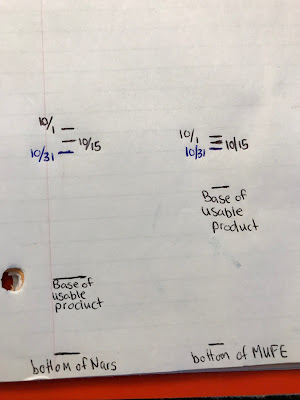 10/1
10/15
10/31
Base of
usable
product
bottom of Nars
10/1
10/15
10/31
Base of
usable
product
bottom of MUFE